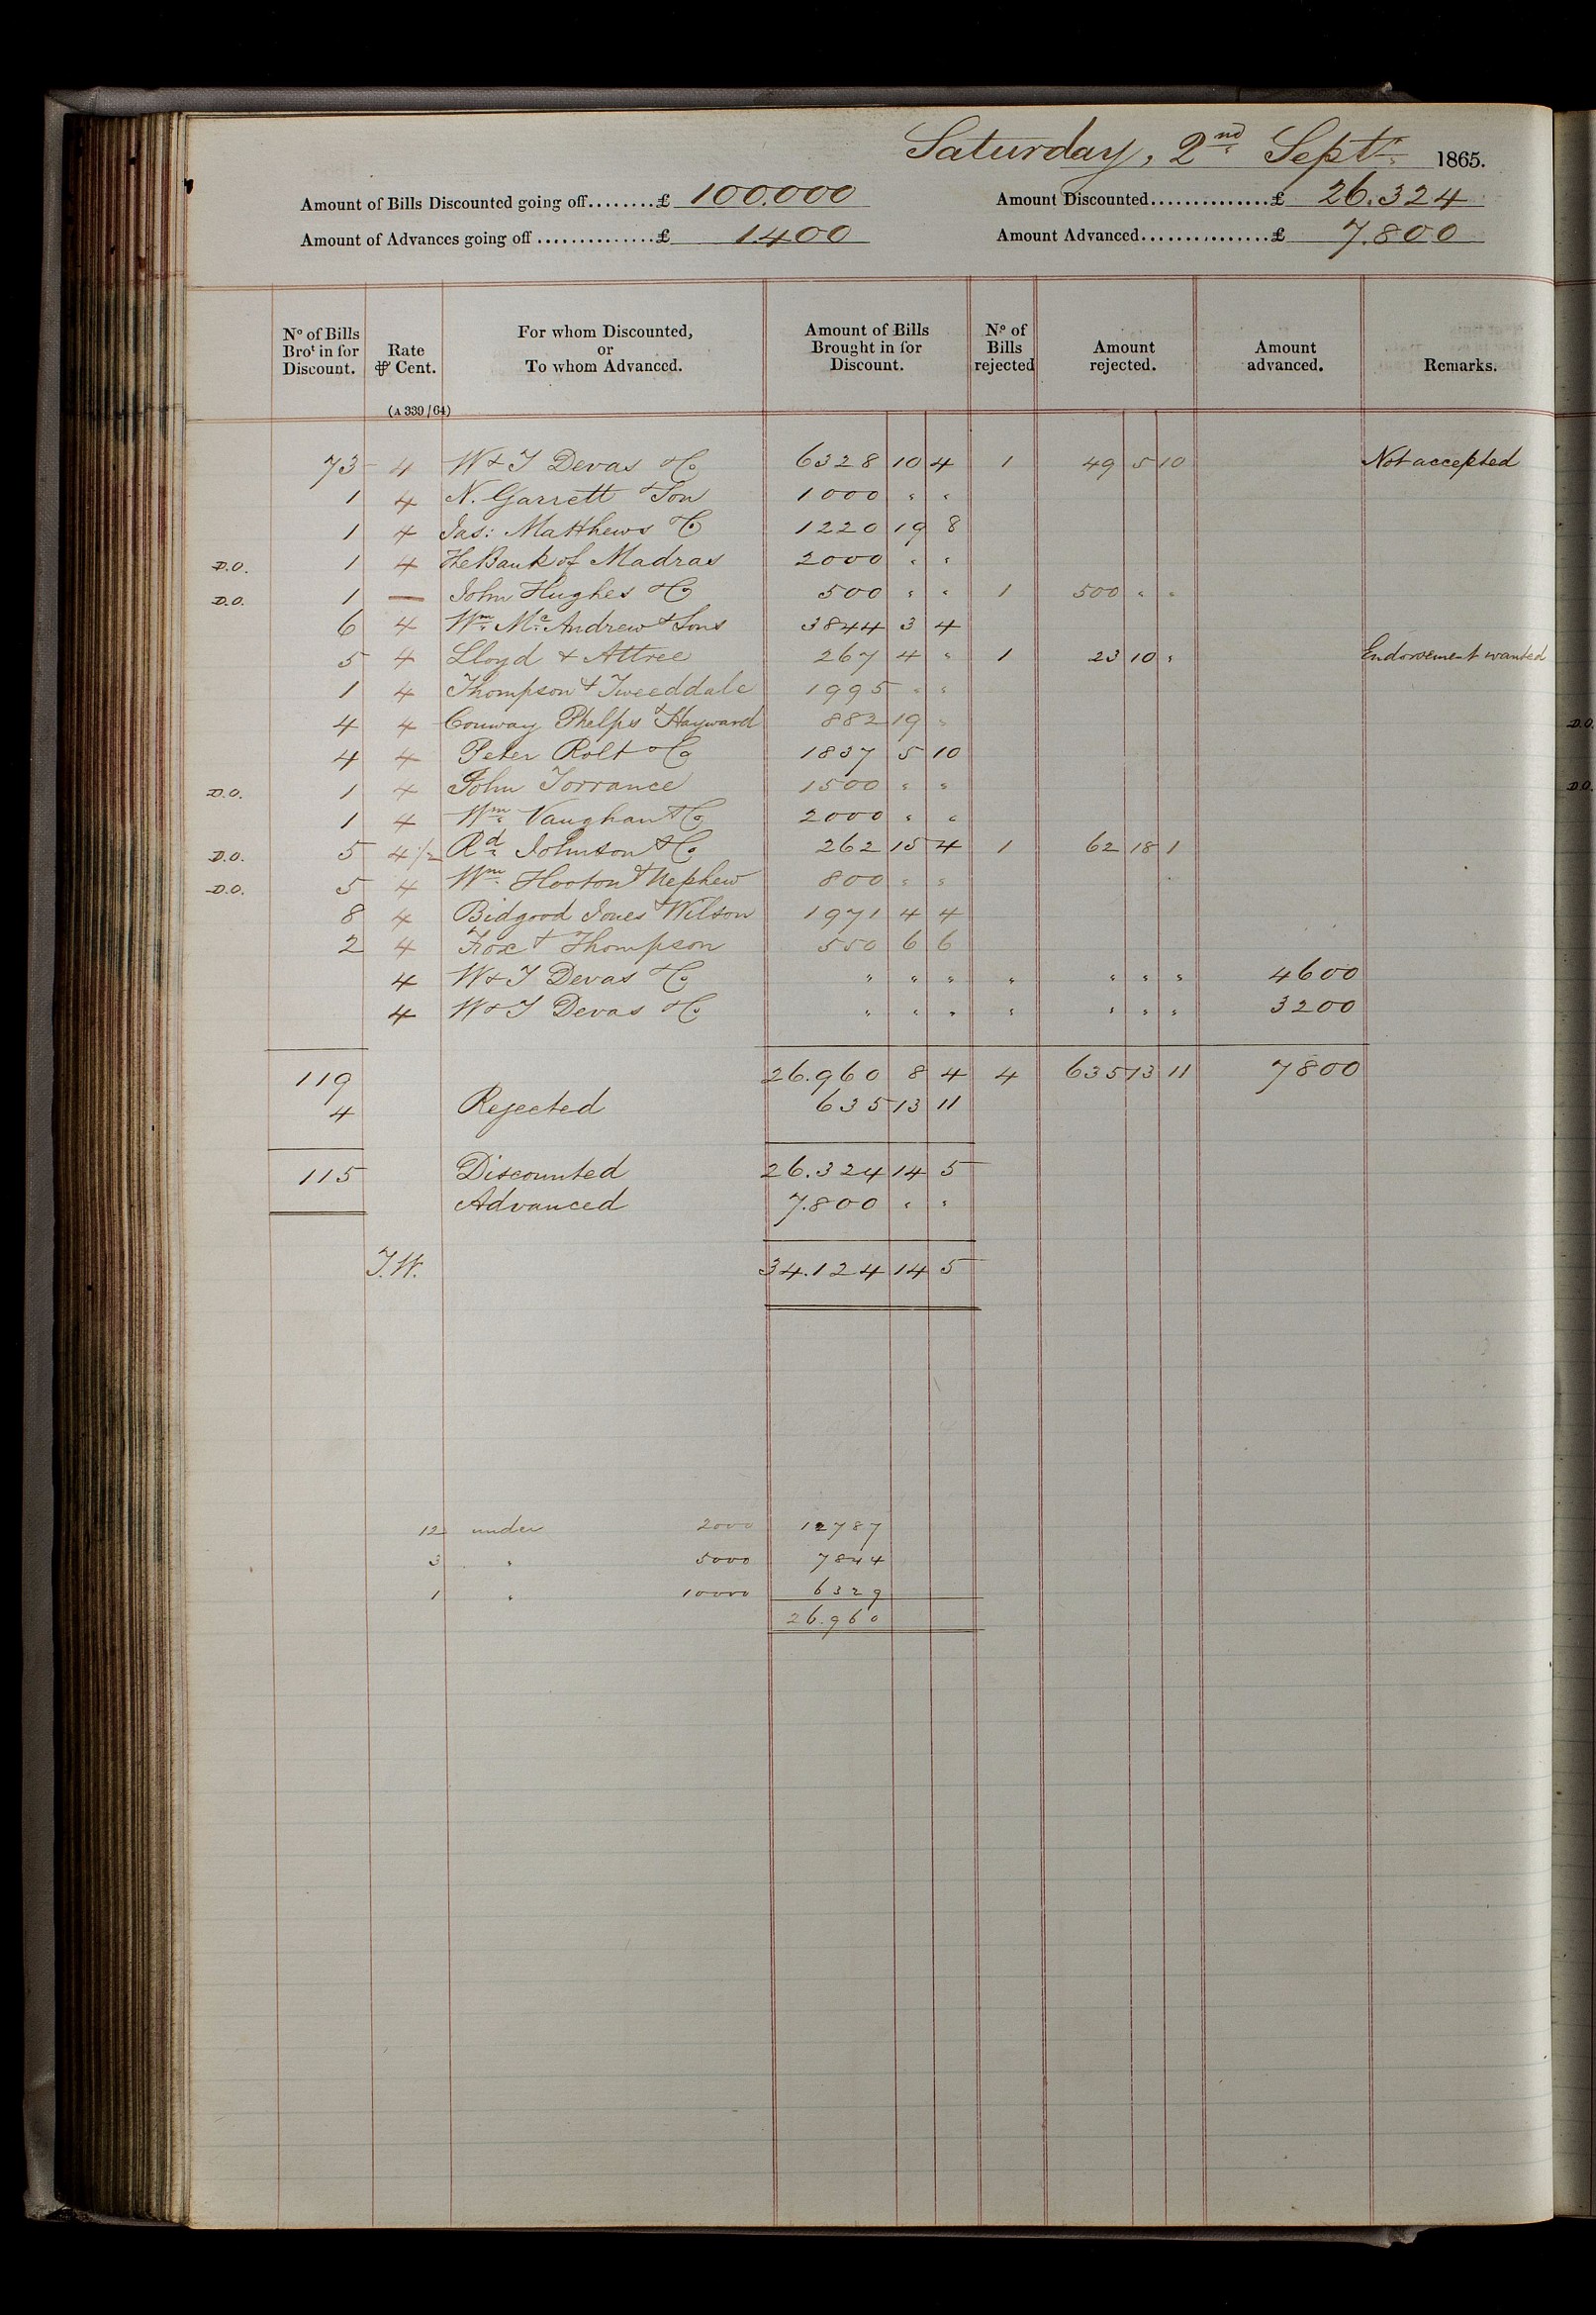 Saturday, 2nd Septr. 1865.
Amount of Bills Discounted going off........£ 100.000 Amount Discounted..............£ 26.324
Amount of Advances going off..............£ 1.400 Amount Advanced...............£ 7.800
No of Bills Brot in for Discount. Rate ⅌ Cent. For whom Discounted, or To whom Advanced. Amount of Bills Brought in for Discount. No of Bills rejected Amount rejected. Amount advanced. Remarks.
(A 339/64)
73 4 W & T Devas & Co 6328 10 4 1 49 5 10 Not accepted
1 4 N. Garrett & Son 1000 " "
1 4 Jas: Matthews & Co 1220 19 8
D.O. 1 4 The Bank of Madras 2000 " "
D.O. 1 — John Hughes & Co 500 " " 1 500 " "
6 4 Wm. Mc.Andrew & Sons 3844 3 4
5 4 Lloyd & Attree 267 4 " 1 23 10 " Endorsement wanted
1 4 Thompson & Tweeddale 1995 " "
4 4 Conway Phelps & Hayward 882 19 " D.O.
4 4 Peter Rolt & Co 1837 5 10
D.O. 1 4 John Torrance 1500 " " D.O.
1 4 Wm. Vaughan & Co 2000 " "
D.O. 5 4 1/2 Rd. Johnson & Co 262 15 4 1 62 18 1
D.O. 5 4 Wm. Hooton & Nephew 800 " "
8 4 Bidgood Jones & Wilson 1971 4 4
2 4 Fox & Thompson 550 6 6
4 W & T Devas & Co " " " " " " " 4600
4 W & T Devas & Co " " " " " " " 3200
119 26.960 8 4 4 635 13 11 7800
4 Rejected 635 13 11
115 Discounted 26.324 14 5
Advanced 7.800 " "
T.W. 34.124 14 5
12 under 2000 12787
3 " 5000 7844
1 " 10000 6329
26.960